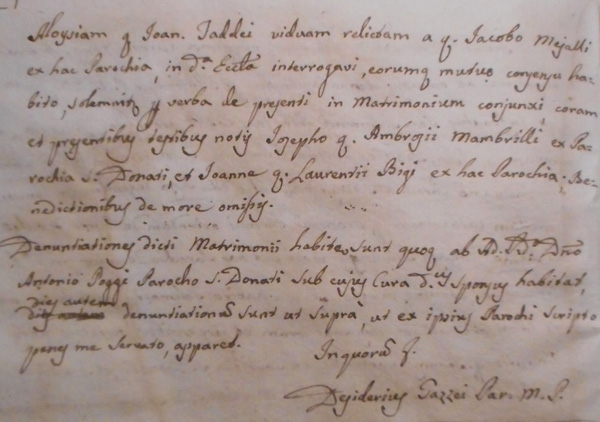 Aloysiam q. Joan. Taddei viduam relictam a q. Jacobo Mejalli
ex hac Parochia, in d.a Eccl.a interrogavi, eorumq mutuo consensu ha-
bito, solemnit.r p verba de presenti in Matrimonium conjunxi, coram
et presentibus testibus notis Josepho q. Ambrogii Mambrilli ex Pa-
rochia S. Donati, et Joanne q. Laurentii Bigi ex hac Parochia; Be-
nedictionibus de more omissis.
Denuntiationes dicti Matrimonii habite sunt quoq ab Ad. R.do Dno
Antonio Poggi Parocho S. Donati sub cujus Cura d.us sponsus habitat,
dies autem denuntiationũ sunt ut supra, ut ex ipsius Parochi scripto
penes me servato, apparet. In quorũ f.
Desiderius Gazzei Par. M. P.